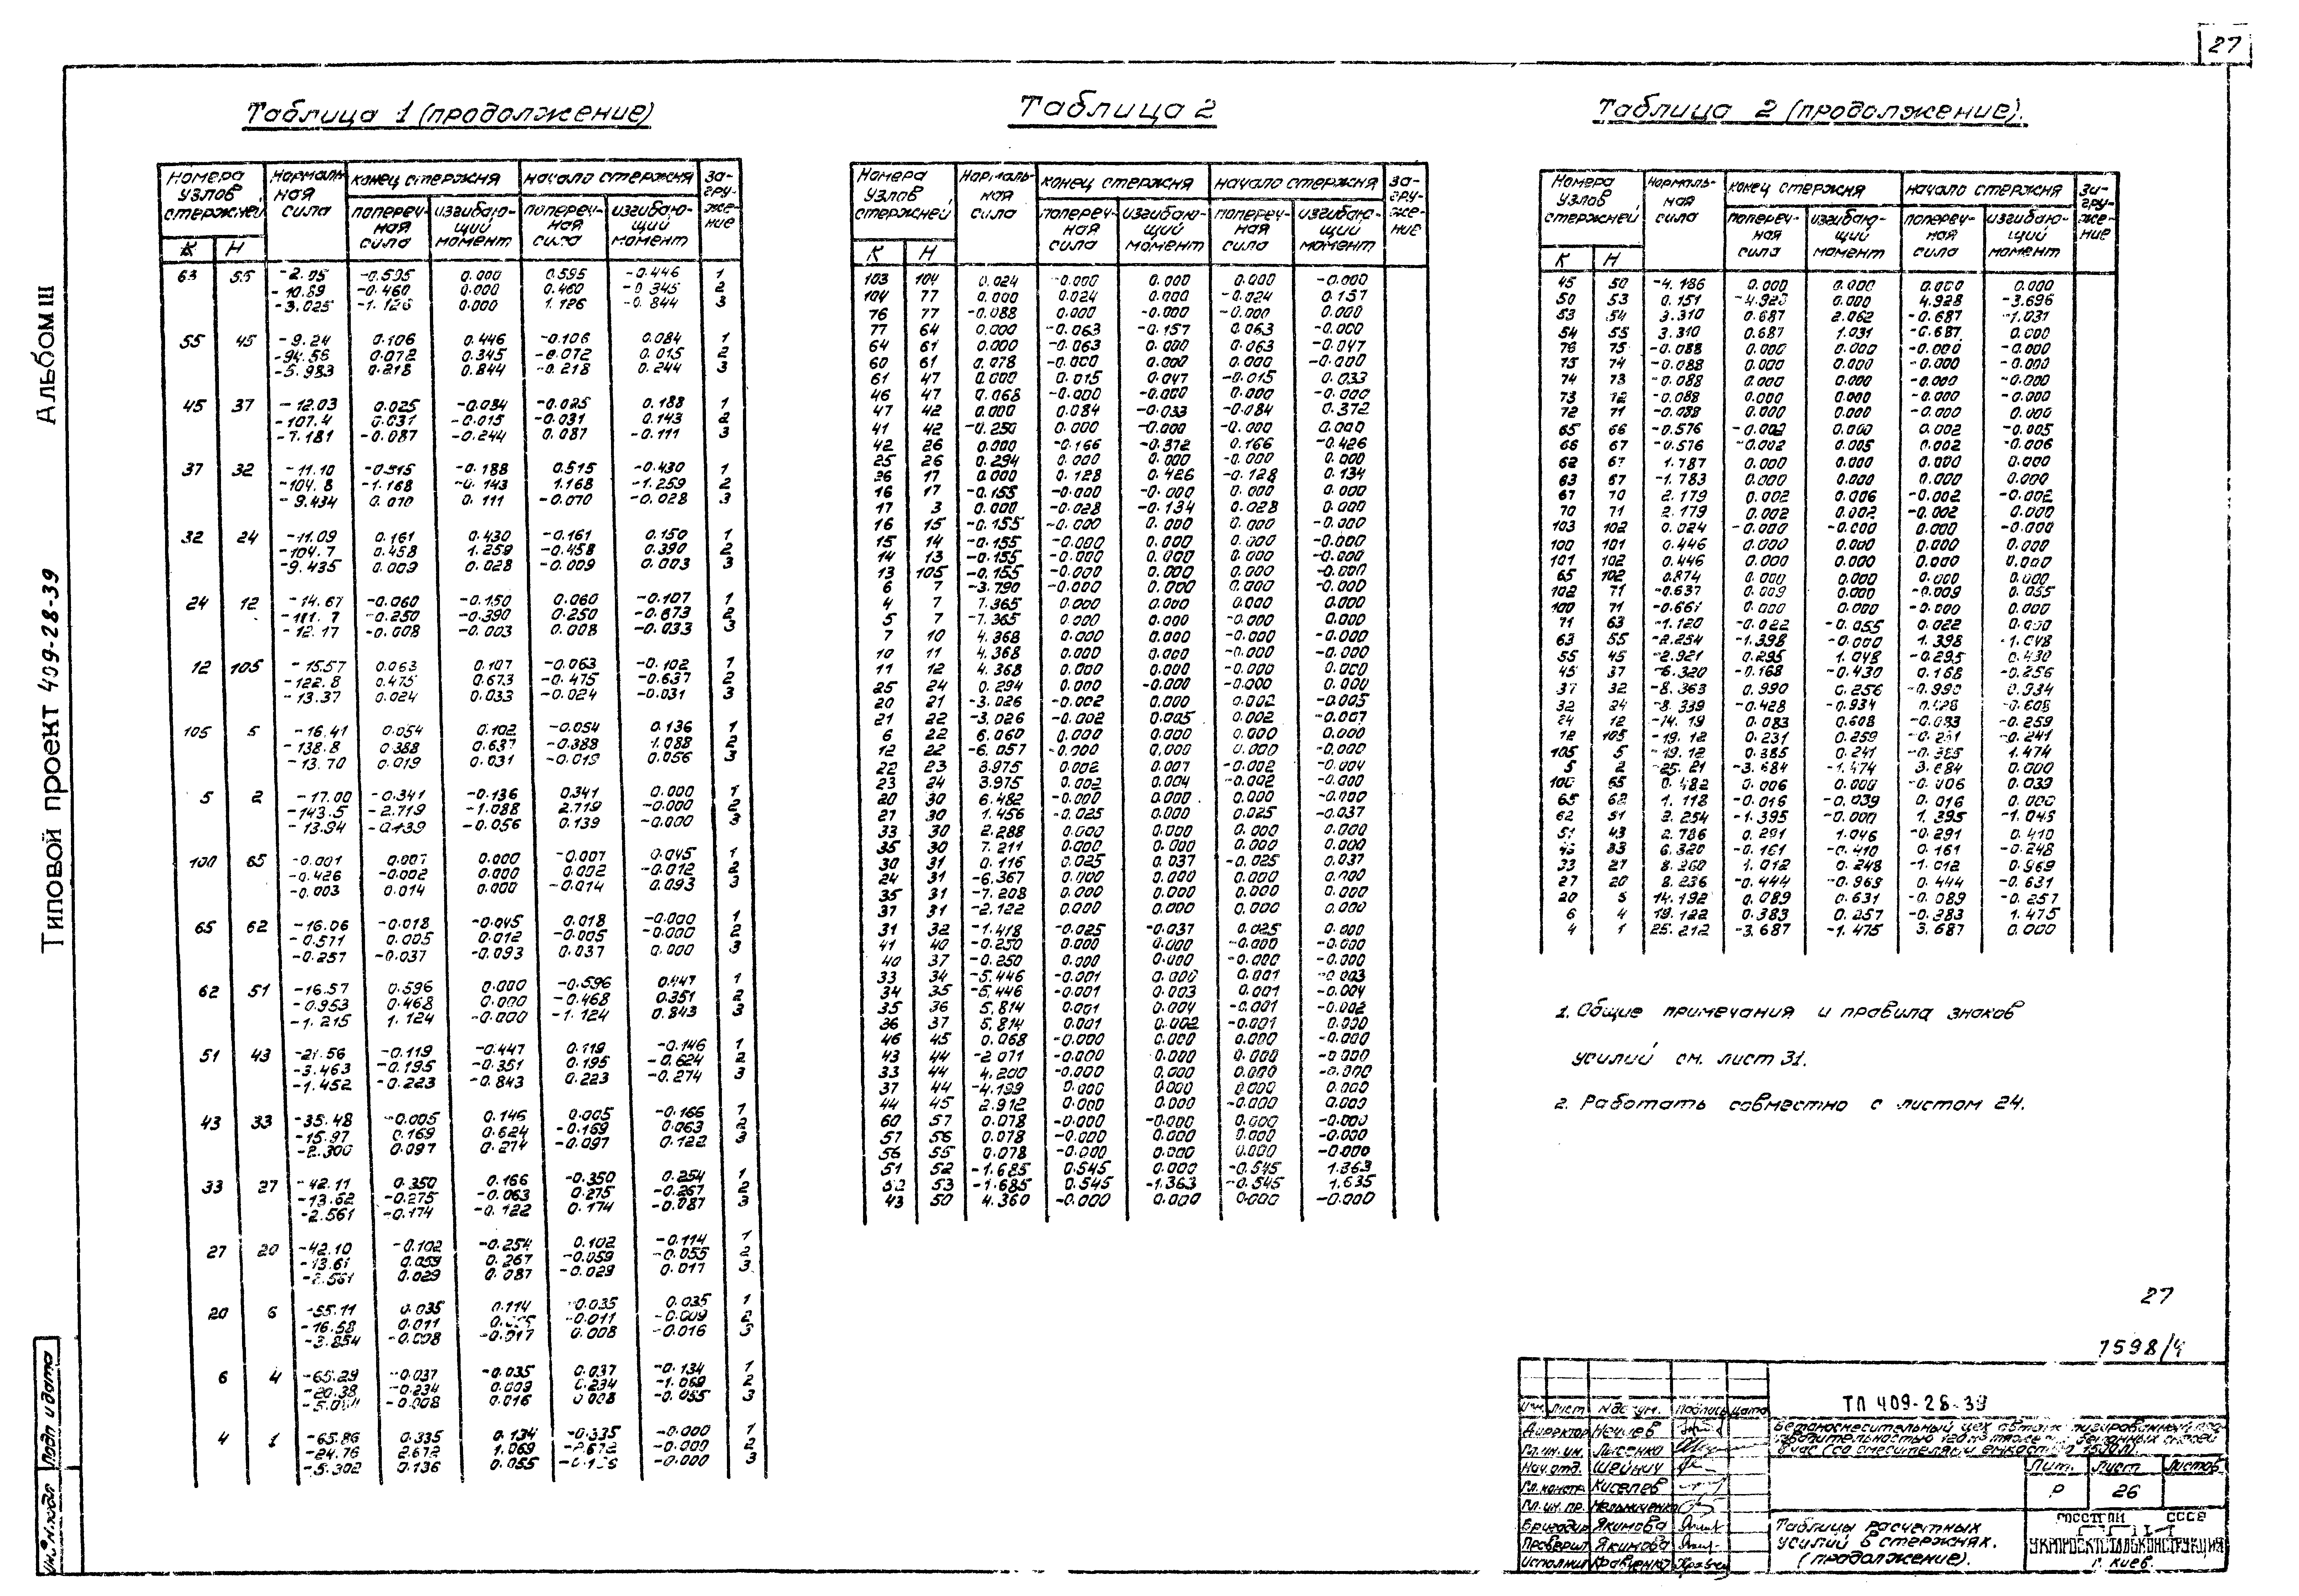 27
Альбом III
Типовой проект 409-28-39
Таблица 1 (продолжение)
Номера узлов стержней
Нормаль ная сила
конец стержня
начало стержня
за-гру-же-ние
попереч-ная сила
изгибаю-щий момент
попереч-ная сила
изгибаю-щий момент
К Н
63 55 -2.05 -0.595 0.000 0.595 -0.446 1
-10.89 -0.460 0.000 0.460 -0.345 2
-3.025 -1.126 0.000 1.126 -0.844 3
55 45 -9.24 0.106 0.446 -0.106 0.084 1
-94.56 0.072 0.345 -0.072 0.015 2
-5.983 0.218 0.844 -0.218 0.244 3
45 37 -12.03 0.025 -0.084 -0.025 0.188 1
-107.4 0.031 -0.015 -0.031 0.143 2
-7.181 -0.087 -0.244 0.087 -0.111 3
37 32 -11.10 -0.515 -0.188 0.515 -0.430 1
-104.8 -1.168 -0.143 1.168 -1.259 2
-9.434 0.070 0.111 -0.070 -0.028 3
32 24 -11.09 0.161 0.430 -0.161 0.150 1
-104.7 0.458 1.259 -0.458 0.390 2
-9.435 0.009 0.028 -0.009 0.003 3
24 12 -14.67 -0.060 -0.150 0.060 -0.107 1
-111.7 -0.250 -0.390 0.250 -0.673 2
-12.17 -0.008 -0.003 0.008 -0.033 3
12 105 -15.57 0.063 0.107 -0.063 -0.102 1
-122.8 0.475 0.673 -0.475 -0.637 2
-13.37 0.024 0.033 -0.024 -0.031 3
105 5 -16.41 0.054 0.102 -0.054 0.136 1
-138.8 0.388 0.637 -0.388 1.088 2
-13.70 0.019 0.031 -0.019 0.056 3
5 2 -17.00 -0.341 -0.136 0.341 0.000 1
-143.5 -2.719 -1.088 2.719 -0.000 2
-13.94 -0.139 -0.056 0.139 -0.000 3
100 65 -0.001 0.007 0.000 -0.007 0.045 1
-0.426 -0.002 0.000 0.002 -0.012 2
-0.003 0.014 0.000 -0.014 0.093 3
65 62 -16.06 -0.018 -0.045 0.018 -0.000 1
-0.571 0.005 0.012 -0.005 -0.000 2
-0.257 -0.037 -0.093 0.037 0.000 3
62 51 -16.57 0.596 0.000 -0.596 0.447 1
-0.953 0.468 0.000 -0.468 0.351 2
-1.215 1.124 -0.000 -1.124 0.843 3
51 43 -21.56 -0.119 -0.447 0.119 -0.146 1
-3.463 -0.195 -0.351 0.195 -0.624 2
-1.452 -0.223 -0.843 0.223 -0.274 3
43 33 -35.48 -0.005 0.146 0.005 -0.166 1
-15.97 0.169 0.624 -0.169 0.063 2
-2.300 0.097 0.274 -0.097 0.122 3
33 27 -42.11 0.350 0.166 -0.350 0.254 1
-13.62 -0.275 -0.063 0.275 -0.267 2
-2.561 -0.174 -0.122 0.174 -0.087 3
27 20 -42.10 -0.102 -0.254 0.102 -0.114 1
-13.61 0.059 0.267 -0.059 -0.055 2
-2.561 0.029 0.087 -0.029 0.017 3
20 6 -55.11 0.035 0.114 -0.035 0.035 1
-16.58 0.011 -0.011 -0.009 2
-3.854 -0.008 -0.017 0.008 -0.016 3
6 4 -65.29 -0.037 -0.035 0.037 -0.134 1
-20.38 -0.234 0.009 0.234 -1.069 2
-0.008 0.016 0.008 -0.055 3
4 1 -65.86 0.335 0.134 -0.335 -0.000 1
-24.76 2.672 1.069 -2.672 -0.000 2
-5.302 0.136 0.055 -0.000 3
Таблица 2
Номера узлов стержней
Нормаль-ная сила
конец стержня
начало стержня
за-гру-же-ние
попереч-ная сила
изгибаю-щий момент
попереч-ная сила
изгибаю-щий момент
К Н
103 104 0.024 -0.000 0.000 0.000 -0.000
104 77 0.000 0.024 0.000 -0.024 0.157
76 77 -0.088 0.000 -0.000 -0.000 0.000
77 64 0.000 -0.063 -0.157 0.063 -0.000
64 61 0.000 -0.063 0.000 0.063 -0.047
60 61 0.078 -0.000 0.000 0.000 -0.000
61 47 0.000 0.015 0.047 -0.015 0.033
46 47 0.068 -0.000 -0.000 0.000 -0.000
47 42 0.000 0.084 -0.033 -0.084 0.372
41 42 -0.250 0.000 -0.000 -0.000 0.000
42 26 0.000 -0.166 -0.372 0.166 -0.426
25 26 0.294 0.000 0.000 -0.000 0.000
26 17 0.000 0.128 0.426 -0.128 0.134
16 17 -0.155 -0.000 -0.000 0.000 0.000
17 3 0.000 -0.028 -0.134 0.028 0.000
16 15 -0.155 -0.000 0.000 0.000 -0.000
15 14 -0.155 -0.000 0.000 0.000 -0.000
14 13 -0.155 -0.000 0.000 0.000 -0.000
13 105 -0.155 -0.000 0.000 0.000 -0.000
6 7 -3.790 -0.000 0.000 0.000 -0.000
4 7 7.365 0.000 0.000 0.000 0.000
5 7 -7.365 0.000 0.000 -0.000 0.000
7 10 4.368 0.000 0.000 -0.000 -0.000
10 11 4.368 0.000 0.000 -0.000 -0.000
11 12 4.368 0.000 0.000 -0.000 0.000
25 24 0.294 0.000 -0.000 -0.000 0.000
20 21 -3.026 -0.002 0.000 0.002 -0.005
21 22 -3.026 -0.002 0.005 0.002 -0.007
6 22 6.060 0.000 0.000 0.000 0.000
12 22 -6.057 -0.000 0.000 0.000 -0.000
22 23 3.975 0.002 0.007 -0.002 -0.004
23 24 3.975 0.002 0.004 -0.002 -0.000
20 30 6.482 -0.000 0.000 0.000 -0.000
27 30 1.456 -0.025 0.000 0.025 -0.037
33 30 2.288 0.000 0.000 0.000 0.000
35 30 7.211 0.000 0.000 0.000 0.000
30 31 0.116 0.025 0.037 -0.025 0.037
24 31 -6.367 0.000 0.000 0.000 0.000
35 31 -7.208 0.000 0.000 0.000 0.000
37 31 -2.122 0.000 0.000 0.000 0.000
31 32 -1.418 -0.025 -0.037 0.025 0.000
41 40 -0.250 0.000 0.000 -0.000 -0.000
40 37 -0.250 0.000 0.000 -0.000 -0.000
33 34 -5.446 -0.001 0.000 0.001 -0.003
34 35 -5.446 -0.001 0.003 0.001 -0.004
35 36 5.814 0.001 0.004 -0.001 -0.002
36 37 5.814 0.001 0.002 -0.001 0.000
46 45 0.068 -0.000 0.000 0.000 -0.000
43 44 -2.071 -0.000 0.000 0.000 -0.000
33 44 4.200 -0.000 0.000 0.000 -0.000
37 44 -4.199 0.000 0.000 0.000 0.000
44 45 2.912 0.000 0.000 -0.000 0.000
60 57 0.078 -0.000 -0.000 0.000 -0.000
57 56 0.078 -0.000 0.000 0.000 -0.000
56 55 0.078 -0.000 0.000 0.000 -0.000
51 52 -1.685 0.545 0.000 -0.545 1.363
52 53 -1.685 0.545 -1.363 -0.545 1.635
43 50 4.360 -0.000 0.000 0.000 -0.000
Таблица 2 (продолжение).
Номера узлов стержней
Нормаль-ная сила
конец стержня
начало стержня
за-гру-же-ние
попереч-ная сила
изгибаю-щий момент
попереч-ная сила
изгибаю-щий момент
К Н
45 50 -4.186 0.000 0.000 0.000 0.000
50 53 0.151 -4.928 0.000 4.928 -3.696
53 54 3.310 0.687 2.062 -0.687 -1.031
54 55 3.310 0.687 1.031 -0.687 0.000
76 75 -0.088 0.000 0.000 -0.000 -0.000
75 74 -0.088 0.000 0.000 -0.000 -0.000
74 73 -0.088 0.000 0.000 -0.000 -0.000
73 72 -0.088 0.000 0.000 -0.000 -0.000
72 71 -0.088 0.000 0.000 -0.000 0.000
65 66 -0.576 -0.002 0.000 0.002 -0.005
66 67 -0.576 -0.002 0.005 0.002 -0.006
62 67 1.787 0.000 0.000 0.000 0.000
63 67 -1.783 0.000 0.000 0.000 0.000
67 70 2.179 0.002 0.006 -0.002 -0.002
70 71 2.179 0.002 0.002 -0.002 0.000
103 102 0.024 -0.000 -0.000 0.000 -0.000
100 101 0.446 0.000 0.000 0.000 0.000
101 102 0.446 0.000 0.000 0.000 0.000
65 102 0.874 0.000 0.000 0.000 0.000
102 71 -0.637 0.009 0.000 -0.009 0.055
100 71 -0.661 0.000 0.000 -0.000 0.000
71 63 -1.120 -0.022 -0.055 0.022 0.000
63 55 -2.254 -1.398 -0.000 1.398 -1.048
55 45 -2.921 0.295 1.048 -0.295 0.430
45 37 -6.320 -0.168 -0.430 0.168 -0.256
37 32 -8.363 0.990 0.256 -0.990 0.934
32 24 -8.339 -0.428 -0.934 0.428 -0.608
24 12 -14.19 0.083 0.608 -0.083 -0.259
12 105 -19.12 0.231 0.259 -0.231 -0.241
105 5 -19.12 0.385 0.241 -0.385 1.474
5 2 -25.21 -3.684 -1.474 3.684 0.000
100 65 0.482 0.006 0.000 -0.006 0.039
65 62 1.118 -0.016 -0.039 0.016 0.000
62 51 2.254 -1.395 -0.000 1.395 -1.046
51 43 2.786 0.291 1.046 -0.291 0.410
43 33 6.320 -0.161 -0.410 0.161 -0.248
33 27 8.260 1.012 0.248 -1.012 0.969
27 20 8.236 -0.444 -0.969 0.444 -0.631
20 6 14.192 0.089 0.631 -0.089 -0.257
6 4 19.122 0.383 0.257 -0.383 1.475
4 1 25.212 -3.687 -1.475 3.687 0.000
1. Общие примечания и правила знаков
усилий см. лист 31.
2. Работать совместно с листом 24.
27
7598/4
ТП 409-28-39
Изм. лист № док-ум. Подпись дата
Директор Нечаев
Гл.инж.ин. Лысенко
Нач.отд. Шейнич
Гл.констр. Киселев
Гл.инж.пр. Мельниченко
Бригадир Якимова
Проверил Якимова
Исполнил Кравченко
Бетоносмесительный цех автоматизированный
Лит. Лист Листов
Р 26
Таблицы расчетных
усилий в стержнях.
(продолжение).
ГОССТРОЙ СССР
УКРПРОЕКТСТАЛЬКОНСТРУКЦИЯ
г. Киев.
Инв.№ подл. Подп и дата